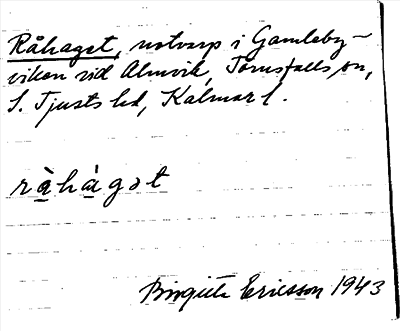 Råhaget, notvarp i Gamleby-
viken vid Almvik, Törnsfalls sn,
S. Tjusts hd, Kalmar l.
rå̀há̀gət
Birgitta Ericsson 1943